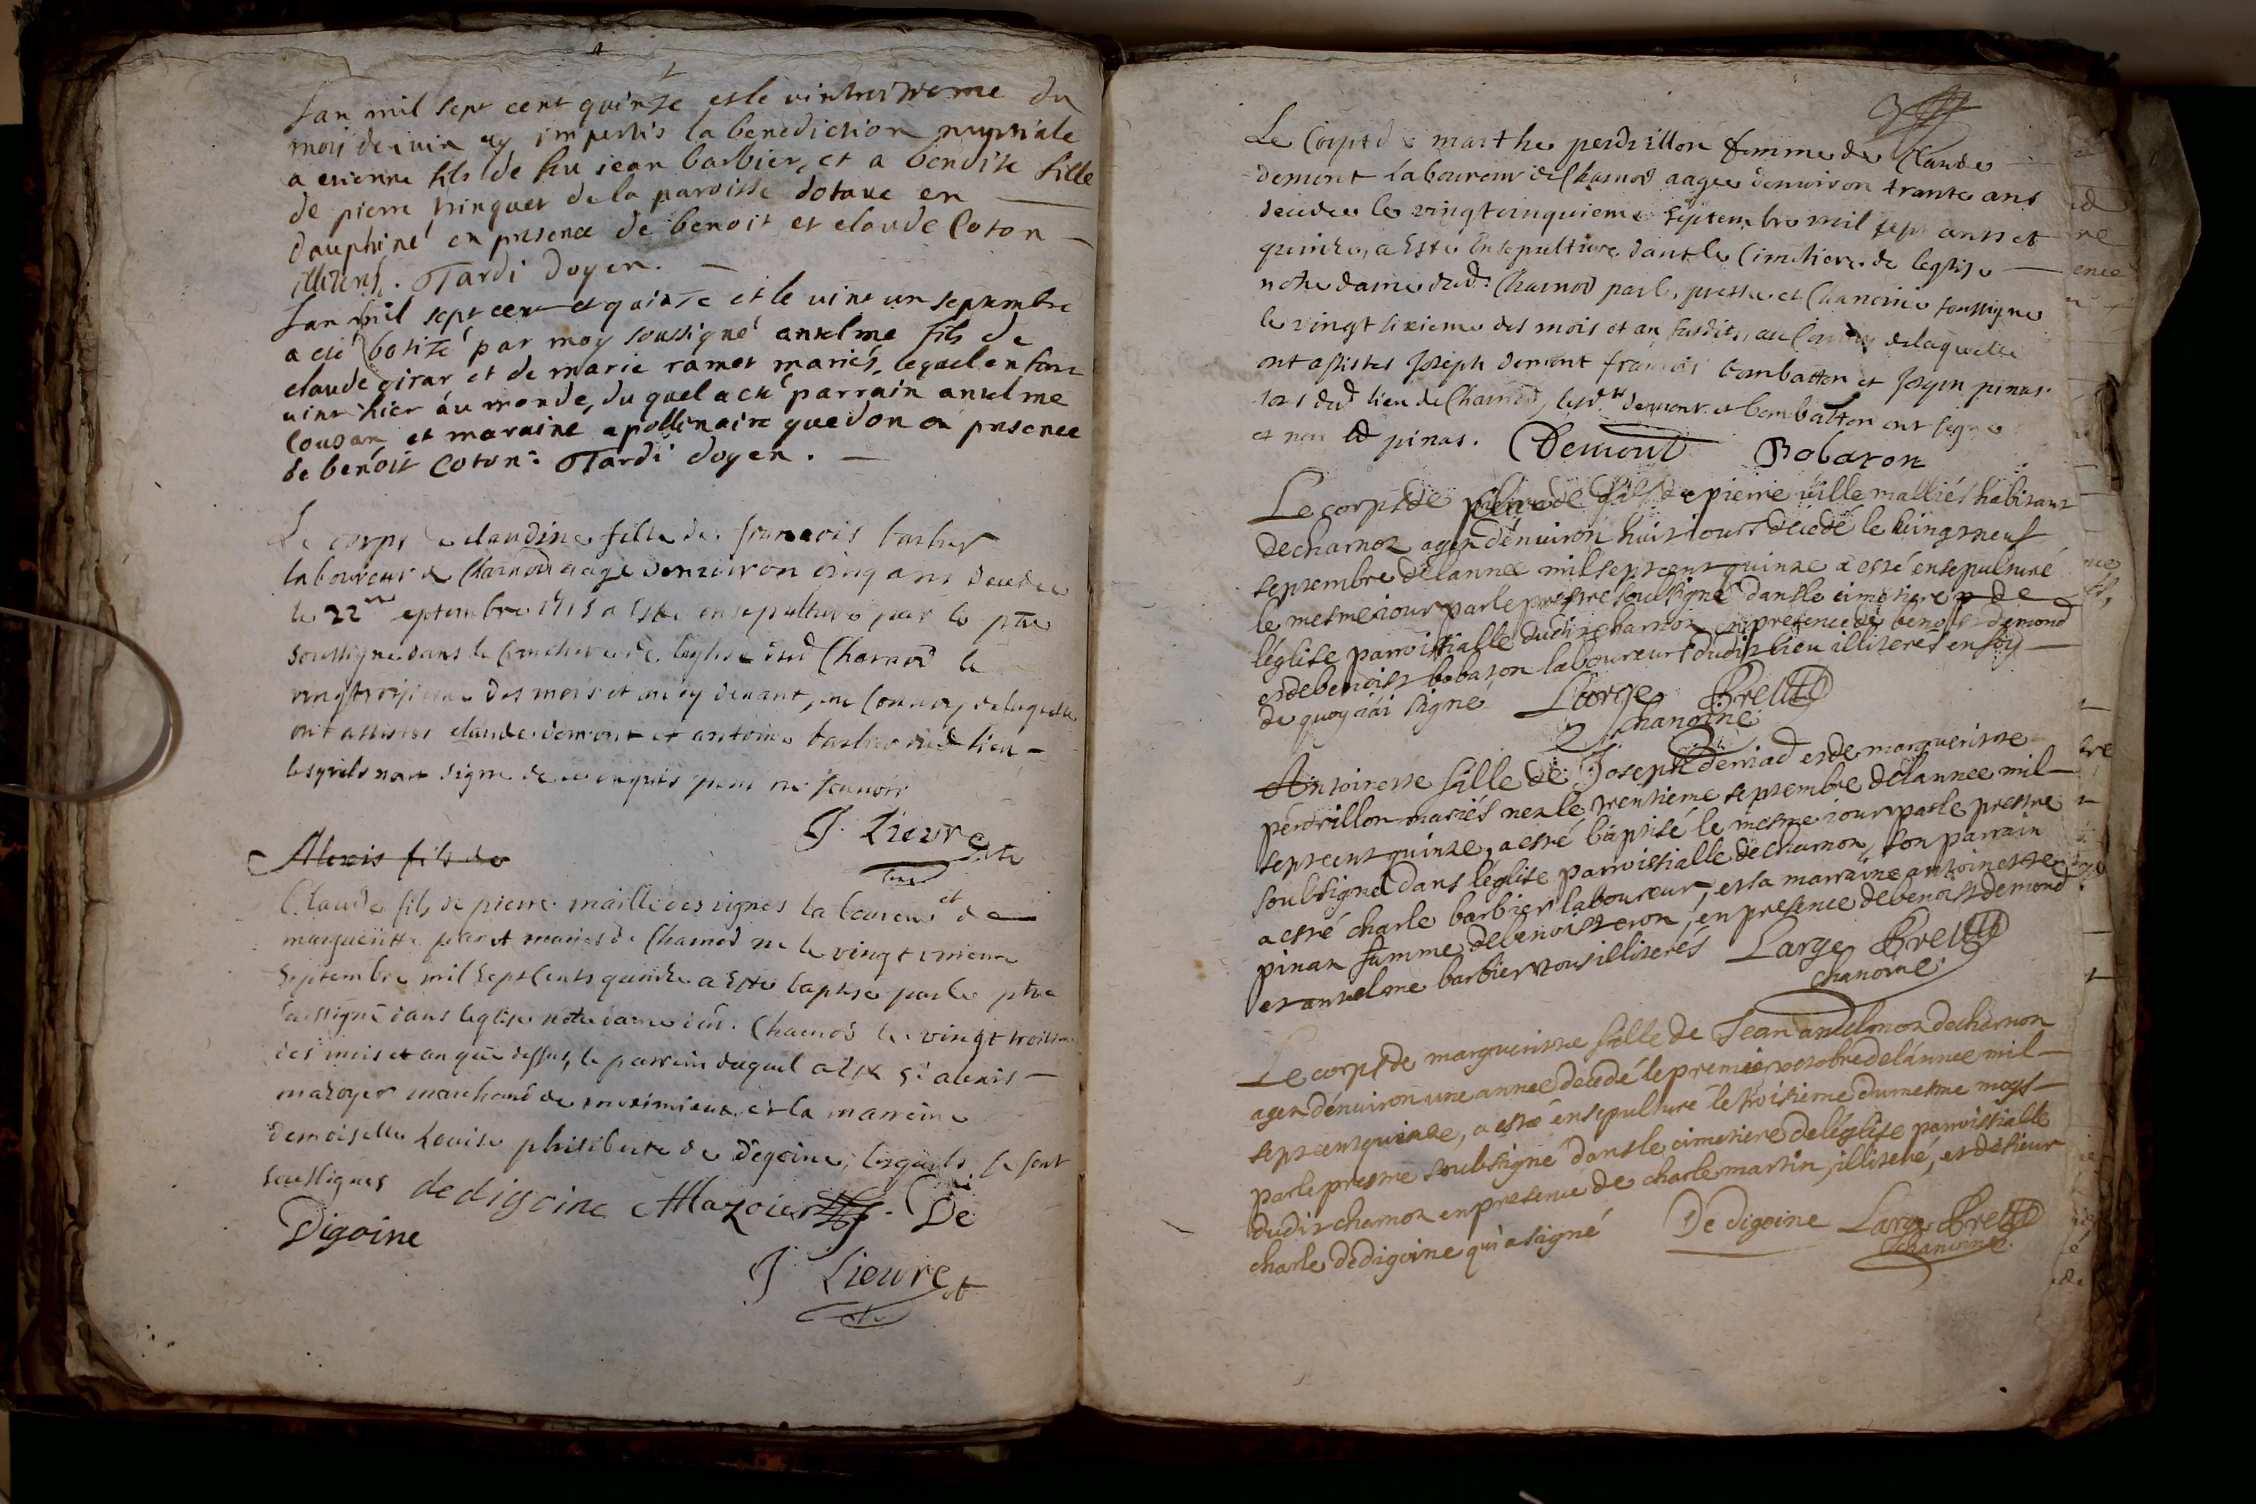 Lan mil sept cent quinze et le vintroizieme du
mois de iuin ay impartis la benediction nuptiale
a etienne fils de feu jean barbier, et a benoite fille
de pierre tringuet de la paroisse dotaue en
dauphiné en presence de benoit et claude Coton
illiterés. Tardi doyen.
Lan mil sept cent et quinze et le vint un septembre
a eté batizé par moy soussigné anselme fils de
claude girar et de marie ramet mariés, lequel enfant
uint hier au monde, du quel a eté parrain anselme
Couzan et maraine apollinaire guedon en presence
de benoit Coton. Tardi doyen.
Le corps de claudine fille de francois barbier
laboureur de Charnod aagé denuiron cinq ans decedee
le 22me septembre 1715 a este ensepulture par le ptre
soussigne dans le Cimetiere de leglise dud Charnod le
vingtroisieme des mois et an cy deuant, au Conuoy de laquelle
ont assistes claude demont et antoine barbier dud lieu
lesquels nont signe de ce enquis pour ne scauoir
J. Lieure ptre
Alexis fils de
Claude fils de pierre maille des vignes laboureur et de
margueritte paret maries de Charnod ne le vingt unieme
Septembre mil sept Cents quinze a este baptise par le ptre
soussigné dans leglise notre dame dud. Charnod le vingt troisieme
des mois et an que dessus, le parrein duquel a este Sr. alexis
mazoyer marchand de meximieux et la marreine
demoiselle Louise philiberte de degoine, lesquels se sont
soussignes dedigoine Mazoier De
Digoine
J Lieure ptre
Le Corps de marthe perdrillon femme de Claude
demont Laboureur de Charnod aagee denuiron trante ans
decedee le vingtcinquieme Septembre mil sept cents et
quinze, a Este Ensepulturee dans le Cimetiere de leglise
notre dame dud. Charnod par le prestre et Chanoine soussigne
le vingt sixieme des mois et an susdits, au Conuoy de laquelle
ont assistes Joseph demont francois bombatton et Joseph pinat
tous dud lieu de Charnod, lesd. demont et bombatton ont signe
et non led pinas. Demont Bobaton
Le corps de pierre fils de pierre uille malliés habitant
de charnoz agez dénuiron huit iours décédé le uingtneuf
septembre de lannee mil sept cent quinze a esté ensepulturé
le mesme iour par le prestre soubsigné dans le cimetiere de
léglise parroissialle dudit charnoz en presence de benoist demond
et de benoist bobaton laboureurs dudit lieu illiterés en foy
de quoy iái signé Large Pretre
Chanoine
Antoinette fille de Joseph demad et de margueritte
perdrillon mariés nez le trentieme septembre de lannee mil
sept cent quinze, a esté baptisé le mesme iour par le prestre
soubsigné dans léglise parroissialle de charnoz, son parrain
a esté charle barbier laboureur, et sa marraine antoinette
pinaz famme de benoist eron, en presence de benoist demond
et anthelme barbier tous illiterés Large Pretre
chanoine
Le corps de margueritte fille de Jean anthelmoz de charnoz
agez dénuiron une annee decedé le premier octobre de lánnee mil
sept cent quinze, a esté ensepulturé le troisieme du mesme moys
par le prestre soubsigné dans le cimetiere de léglise parroissialle
dudit charnoz en presence de charle martin, illiteré, et de sieur
charle dedigoine qui a signé De digoine Large Pretre
chanoine